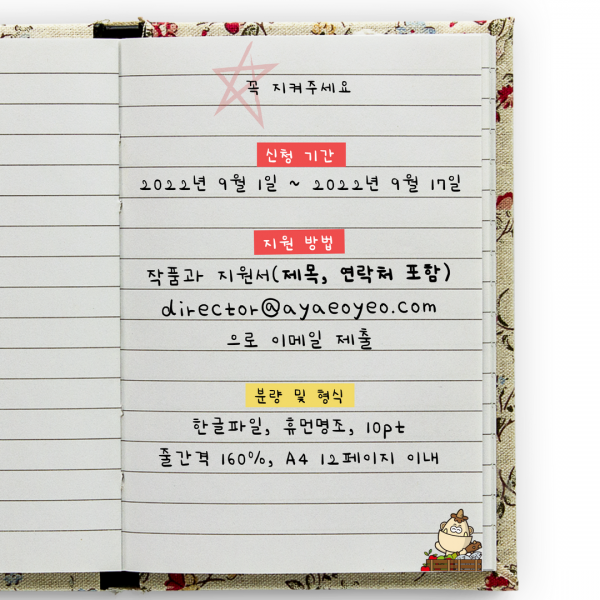 꼭 지켜주세요
신청 기간
2022년 9월 1일 ~ 2022년 9월 17일
지원 방법
작품과 지원서(제목, 연락처 포함)
director@ayaeoyeo.com
으로 이메일 제출
분량 및 형식
한글파일, 휴먼명조, 10pt
줄간격 160%, A4 12페이지 이내